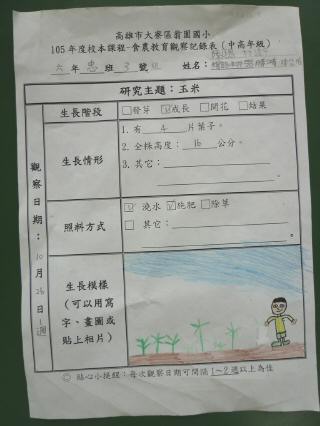 高雄市大寮區翁園國小
105年度校本課程-食農教育觀察記錄表（中高年級）
六年忠班3號 姓名：
研究主題：玉米
生長階段 □發芽 ☑成長 □開花 □結果
觀察日期：10月26日1週
生長情形
1. 有 4 片葉子。
2. 全株高度： 16 公分。
3. 其它：
照料方式
☑ 澆水 ☑施肥 □除草
□ 其它：
。
生長模樣
（可以用寫
字、畫圖或
貼上相片）
◎ 貼心小提醒：每次觀察日期可間隔1~2週以上為佳